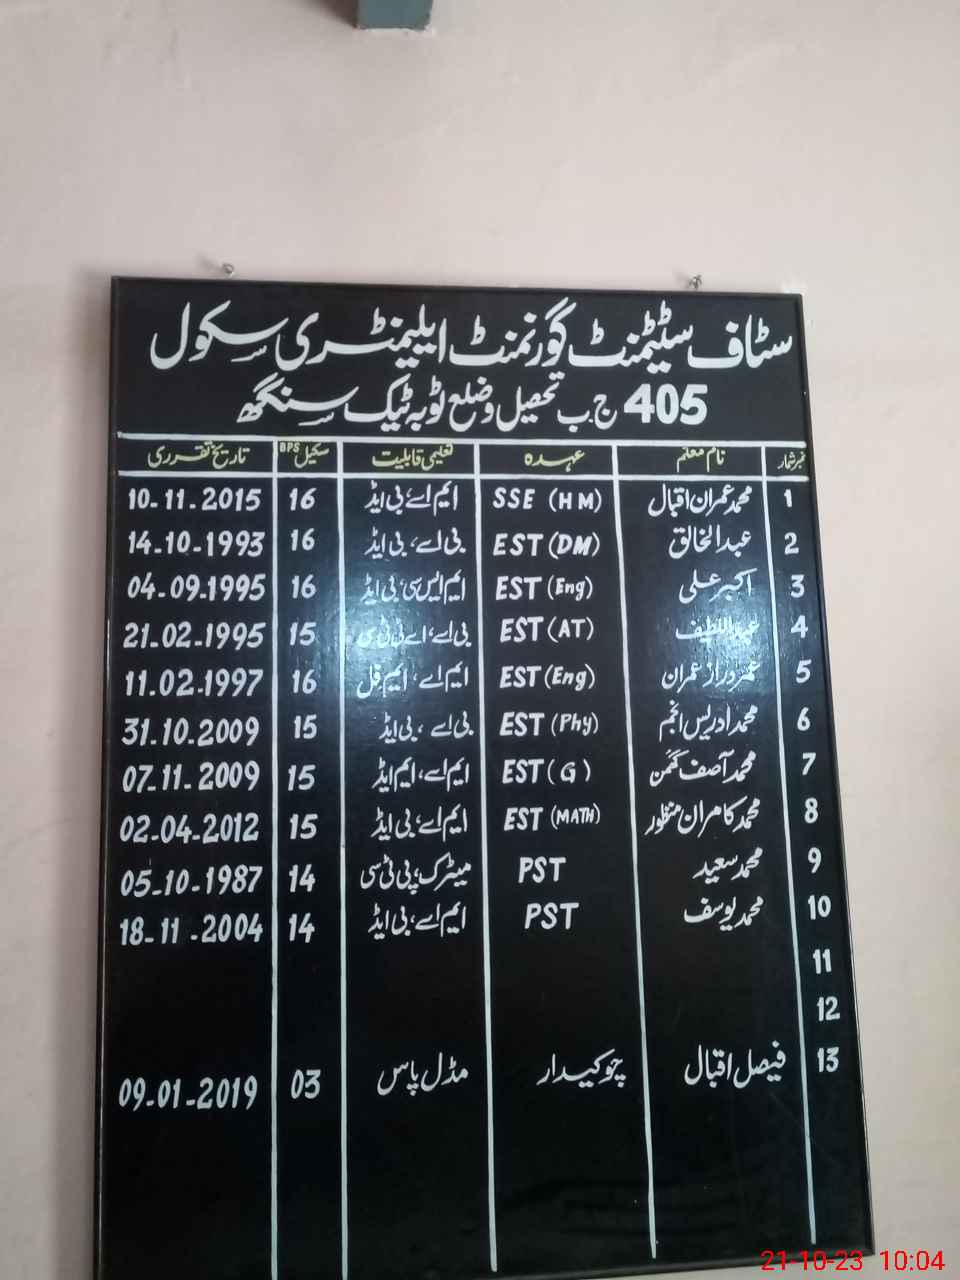 سٹاف سٹیٹمنٹ گورنمنٹ ایلیمنٹری سکول
405 ج ب تحصیل و ضلع ٹوبہ ٹیک سنگھ
نمبر شمار نام معلم عہدہ تعلیمی قابلیت سکیل BPS تاریخ تقرری
1 محمد عمران اقبال SSE (HM) ایم اے، بی ایڈ 16 10-11-2015
2 عبدالخالق EST (DM) بی اے، بی ایڈ 16 14-10-1993
3 اکبر علی EST (Eng) ایم ایس سی، بی ایڈ 16 04-09-1995
4 عبداللطیف EST (AT) بی اے، اے ٹی ٹی سی 15 21-02-1995
5 عمر دراز عمران EST (Eng) ایم اے، ایم فل 16 11-02-1997
6 محمد ادریس انجم EST (Phy) بی اے، بی ایڈ 15 31-10-2009
7 محمد آصف گھمن EST (G) ایم اے، ایم ایڈ 15 07-11-2009
8 محمد کامران منظور EST (MATH) ایم اے، بی ایڈ 15 02-04-2012
9 محمد سعید PST میٹرک، پی ٹی سی 14 05-10-1987
10 محمد یوسف PST ایم اے، بی ایڈ 14 18-11-2004
11
12
13 فیصل اقبال چوکیدار مڈل پاس 03 09-01-2019
21-10-23 10:04